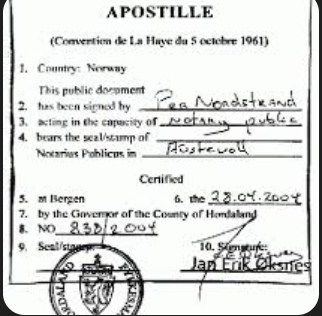 APOSTILLE
(Convention de La Haye du 5 octobre 1961)
1. Country: Norway
This public document
2. has been signed by Per Nordstrand
3. acting in the capacity of notary public
4. bears the seal/stamp of
Notarius Publicus in Austevoll
Certified
5. at Bergen 6. the 28.04.2004
7. by the Governor of the County of Hordaland
8. NO 838/2004
9. Seal/stamp: 10. Signature:
Jan Erik Øksnes